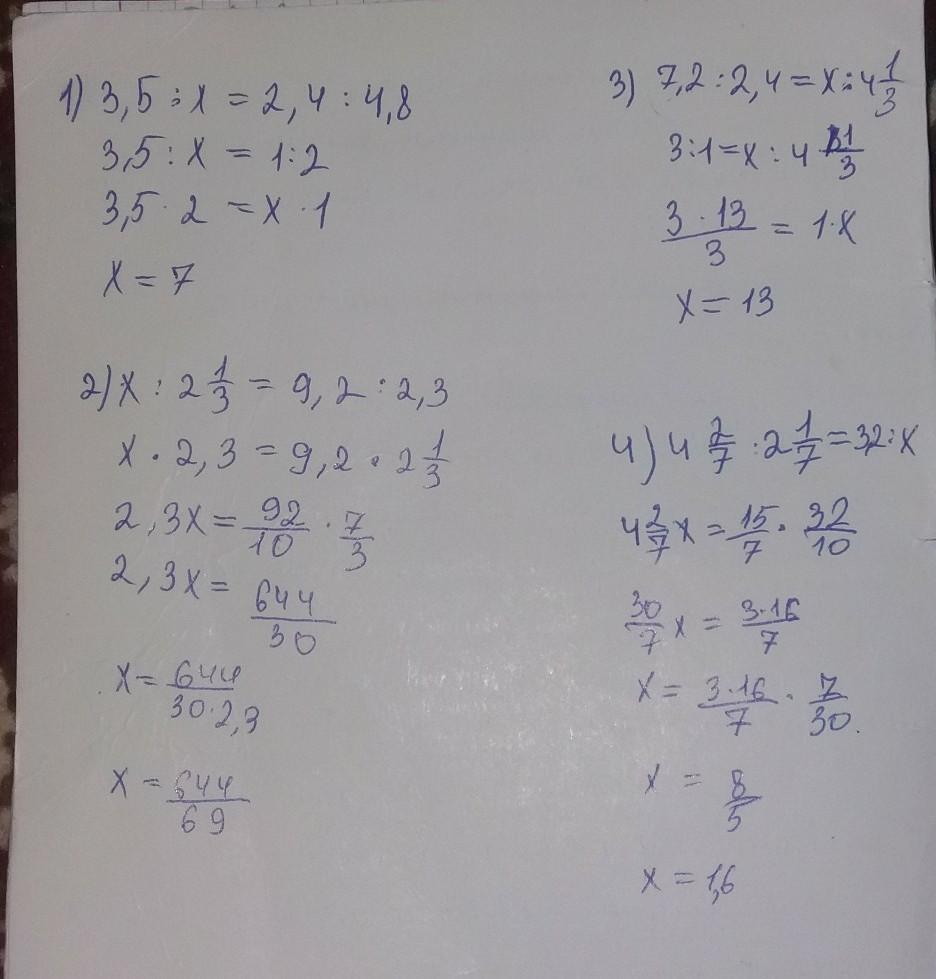 1) 3,5 : x = 2,4 : 4,8
3,5 : x = 1:2
3,5 · 2 = x · 1
x = 7
2) x : 2 1/3 = 9,2 : 2,3
x · 2,3 = 9,2 · 2 1/3
2,3x = 92/10 · 7/3
2,3x = 644/30
x = 644/30·2,3
x = 644/69
3) 7,2 : 2,4 = x : 4 1/3
3:1 = x : 4 1/3
3 · 13/3 = 1·x
x = 13
4) 4 2/7 : 2 1/7 = 32 : x
4 2/7 x = 15/7 · 32/10
30/7 x = 3·16/7
x = 3·16/7 · 7/30
x = 8/5
x = 1,6